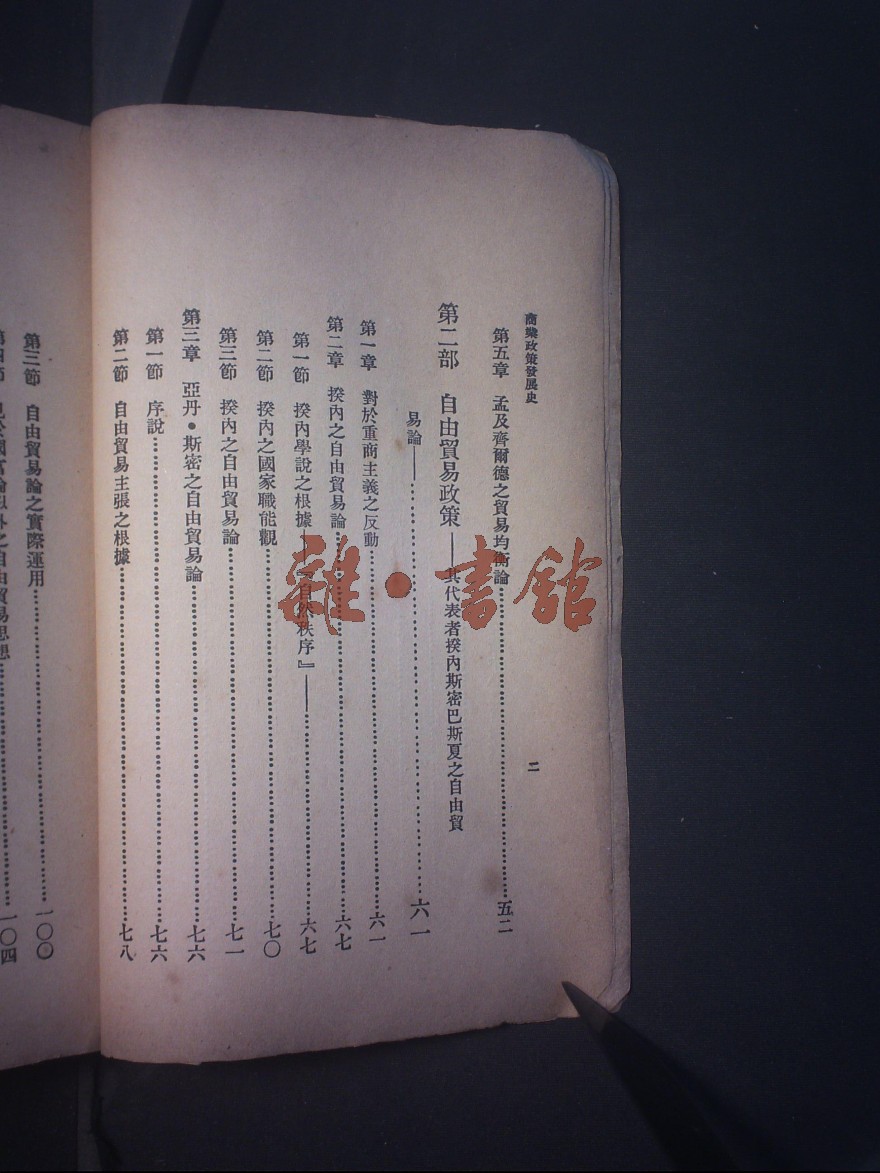 商業政策發展史
二
第五章　孟及齊爾德之貿易均衡論……五二
第二部　自由貿易政策——其代表者揆內斯密巴斯夏之自由貿
易論——……六一
第一章　對於重商主義之反動……六一
第二章　揆內之自由貿易論……六七
第一節　揆內學說之根據——『自然秩序』——……六七
第二節　揆內之國家職能觀……七〇
第三節　揆內之自由貿易論……七一
第三章　亞丹•斯密之自由貿易論……七六
第一節　序說……七六
第二節　自由貿易主張之根據……七八
第三節　自由貿易論之實際運用……一〇〇
第四節　見於國富論以外之自由貿易思想……一〇四
雜•書館